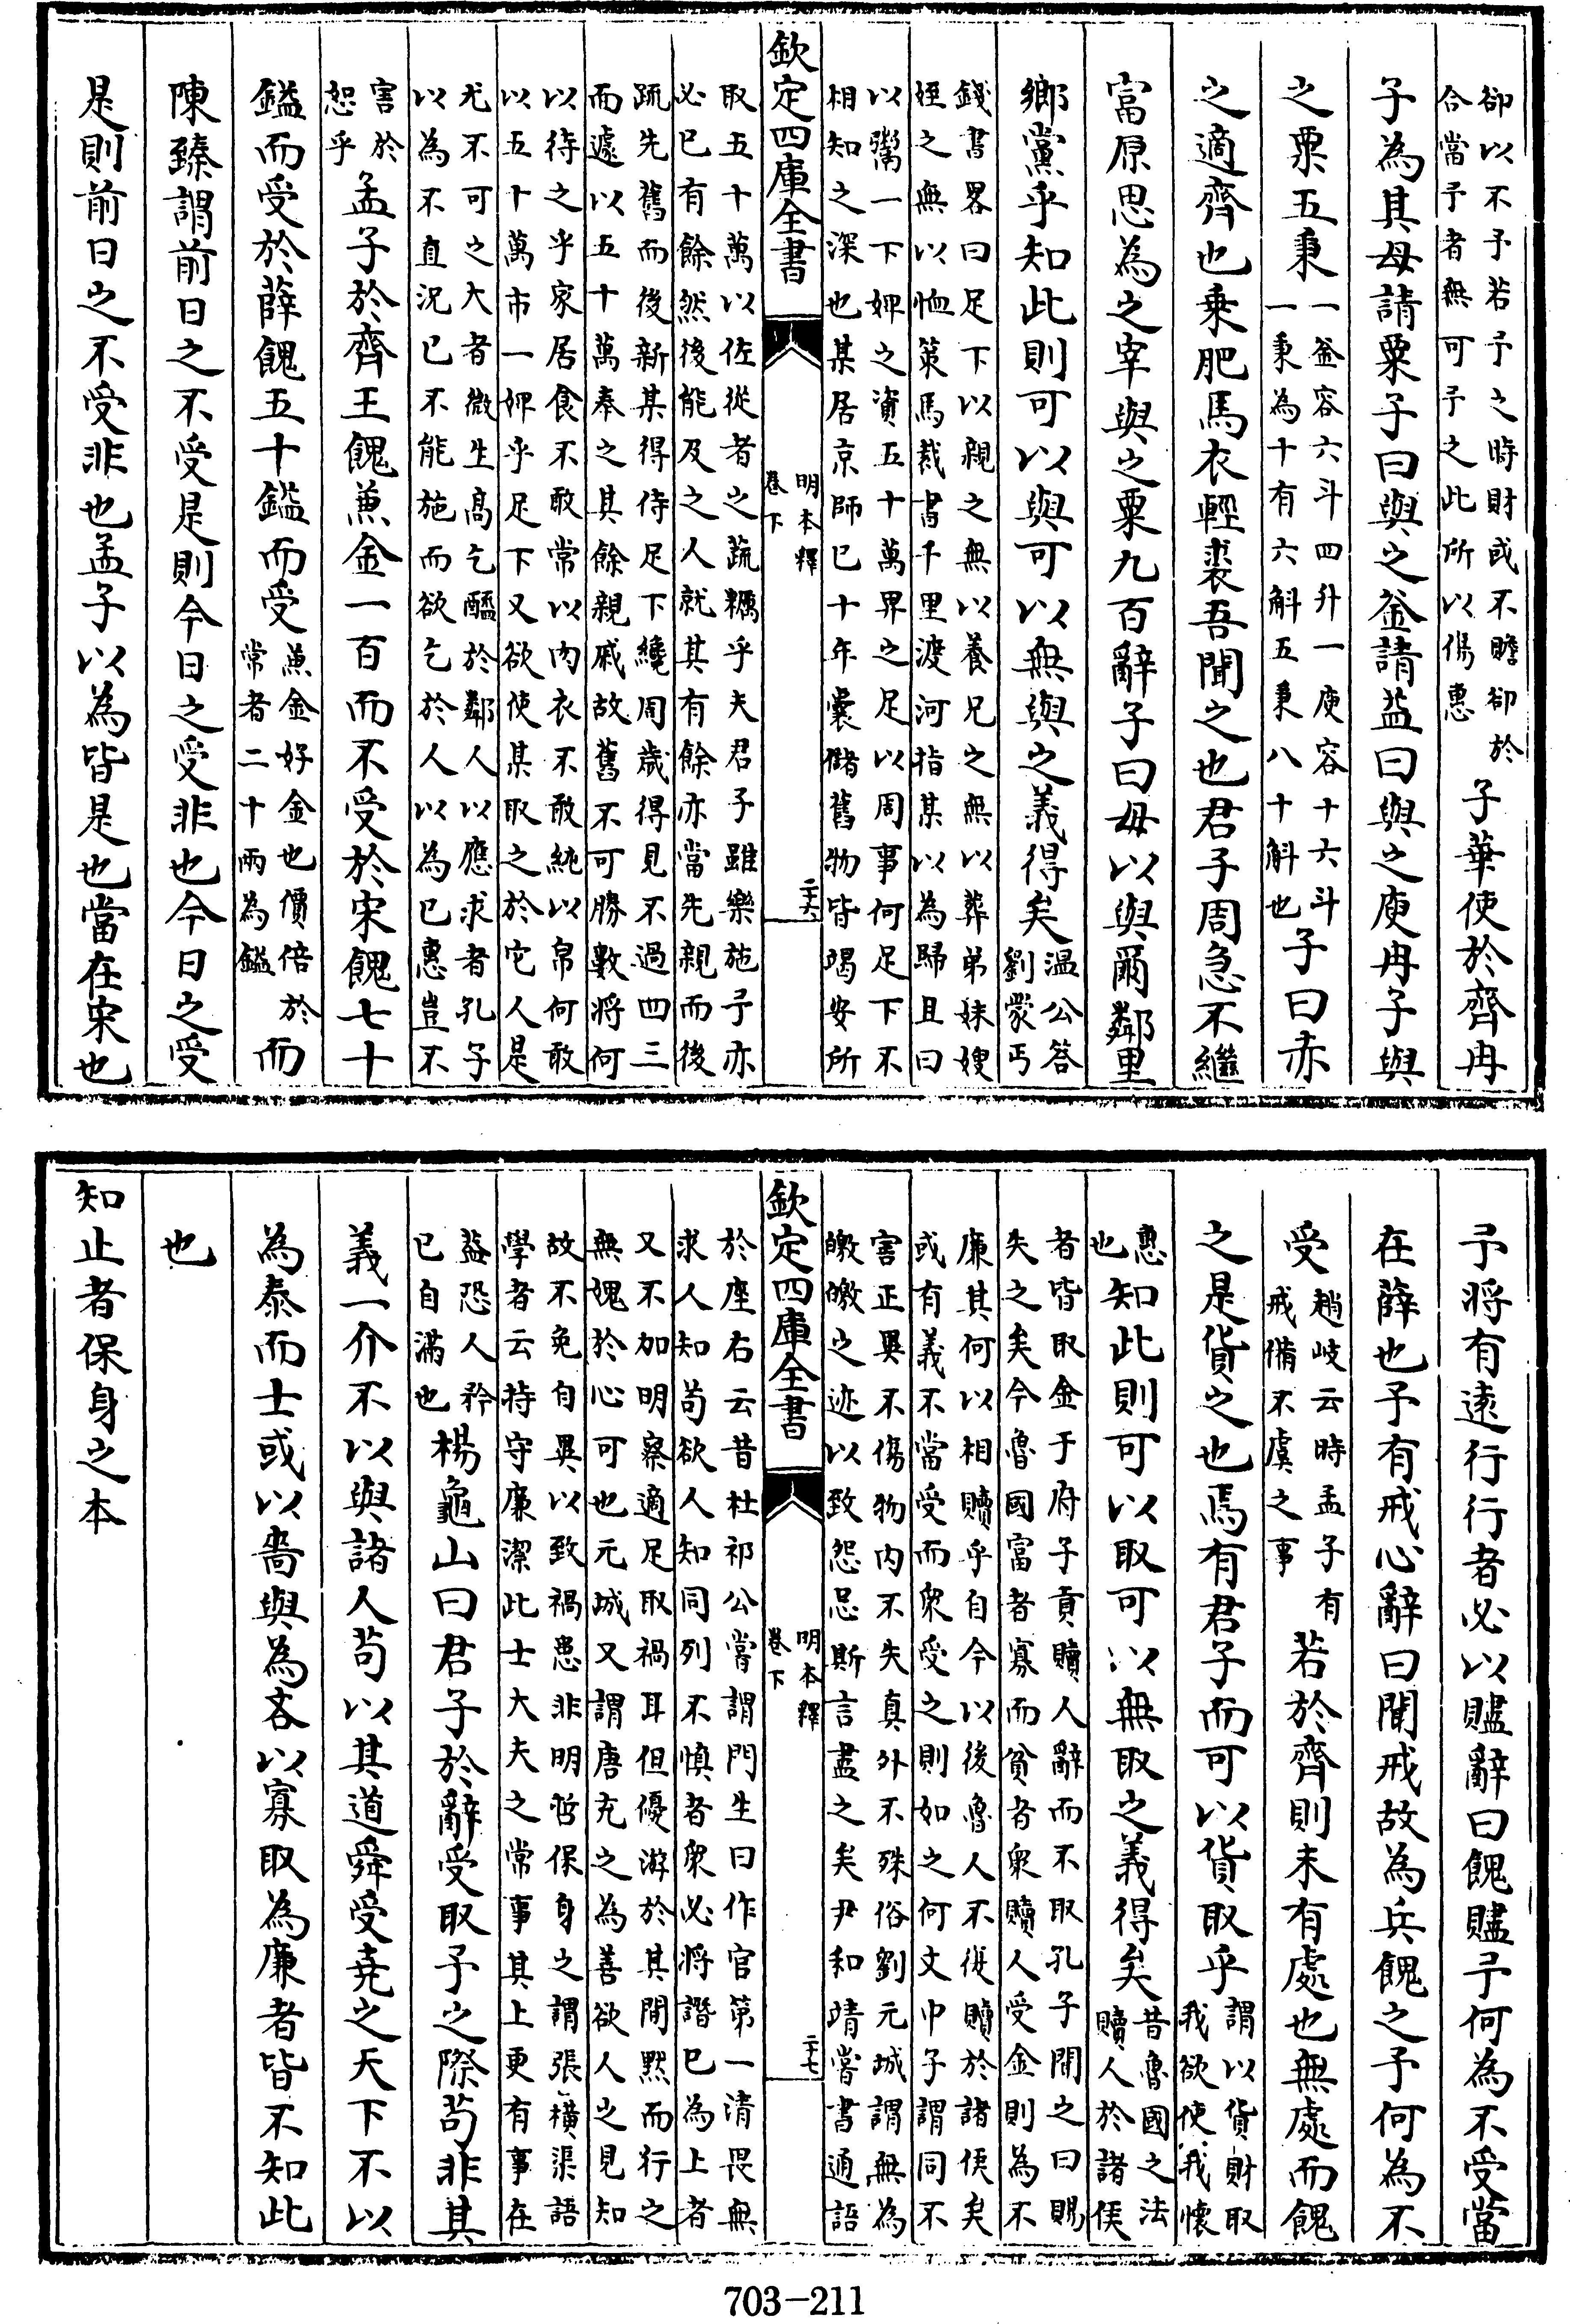 卻以不予若予之時財或不贍卻於
合當予者無可予之此所以傷惠
子華使於齊冉
子為其母請粟子曰與之釜請益曰與之庾冉子與
之粟五秉
一釜容六斗四升一庾容十六斗
一秉為十有六斛五秉八十斛也
子曰赤
之適齊也乘肥馬衣輕裘吾聞之也君子周急不繼
富原思為之宰與之粟九百辭子曰毋以與爾鄰里
鄉黨乎知此則可以與可以無與之義得矣
温公答
劉蒙丐
錢書畧曰足下以親之無以養兄之無以葬弟妹嫂
姪之無以恤策馬裁書千里渡河指某以為歸且曰
以鬻一下婢之資五十萬畀之足以周事何足下不
相知之深也某居京師已十年囊儲舊物皆竭安所
欽定四庫全書
明本釋
卷下
二十六
取五十萬以佐從者之蔬糲乎夫君子雖樂施予亦
必己有餘然後能及之人就其有餘亦當先親而後
疏先舊而後新某得侍足下纔周歲得見不過四三
而遽以五十萬奉之其餘親戚故舊不可勝數將何
以待之乎家居食不敢常以肉衣不敢純以帛何敢
以五十萬市一婢乎足下又欲使某取之於它人是
尤不可之大者微生高乞醯於鄰人以應求者孔子
以為不直況已不能施而欲乞於人以為已惠豈不
害於
恕乎
孟子於齊王餽兼金一百而不受於宋餽七十
鎰而受於薛餽五十鎰而受
兼金好金也價倍於
常者二十兩為鎰
而
陳臻謂前日之不受是則今日之受非也今日之受
是則前日之不受非也孟子以為皆是也當在宋也
予將有遠行行者必以贐辭曰餽贐予何為不受當
在薛也予有戒心辭曰聞戒故為兵餽之予何為不
受
趙岐云時孟子有
戒備不虞之事
若於齊則未有處也無處而餽
之是貨之也焉有君子而可以貨取乎
謂以貨財取
我欲使我懷
惠
也
知此則可以取可以無取之義得矣
昔魯國之法
贖人於諸侯
者皆取金于府子貢贖人辭而不取孔子聞之曰賜
失之矣今魯國富者寡而貧者衆贖人受金則為不
廉其何以相贖乎自今以後魯人不復贖於諸侯矣
或有義不當受而衆受之則如之何文中子謂同不
害正異不傷物內不失真外不殊俗劉元城謂無為
皦皦之迹以致怨忌斯言盡之矣尹和靖嘗書通語
欽定四庫全書
明本釋
卷下
二十七
於座右云昔杜祁公嘗謂門生曰作官第一清畏無
求人知苟欲人知同列不慎者衆必將譖已為上者
又不加明察適足取禍耳但優游於其間默而行之
無媿於心可也元城又謂唐充之為善欲人之見知
故不免自異以致禍患非明哲保身之謂張橫渠語
學者云持守廉潔此士大夫之常事其上更有事在
益恐人矜
已自滿也
楊龜山曰君子於辭受取予之際苟非其
義一介不以與諸人苟以其道舜受堯之天下不以
為泰而士或以嗇與為吝以寡取為廉者皆不知此
也
知止者保身之本
703-211